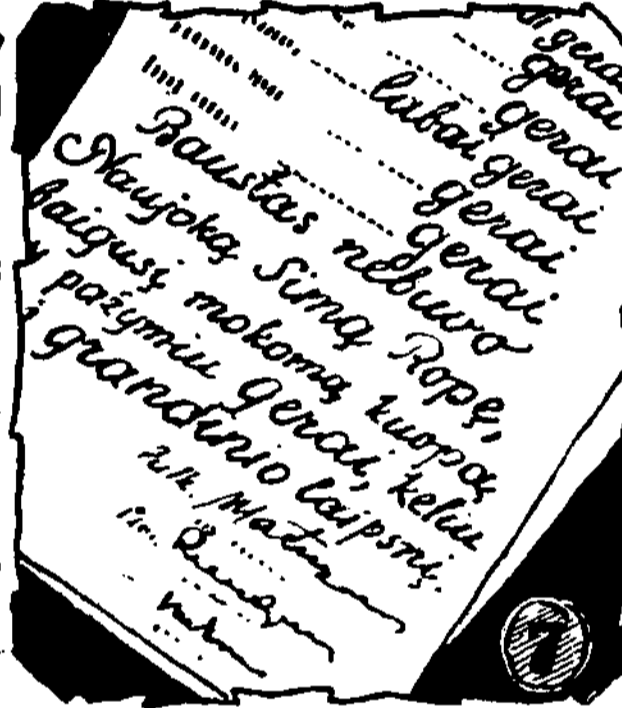 gerai
gerai
labai gerai
gerai
gerai
Baustas nebuvo
Naujoką Simą Ropę,
baigusį mokomą kuopą
pažymiu gerai, keliu
į grandinio laipsnį.
7